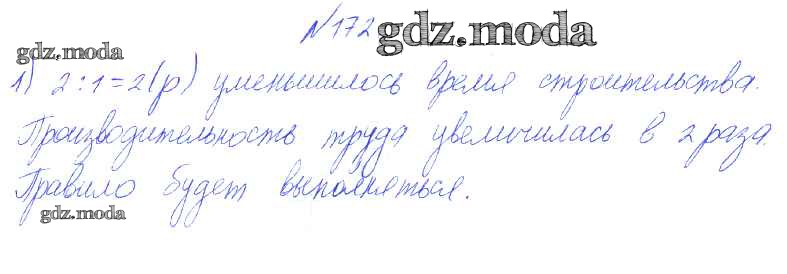 №172 gdz.moda
gdz.moda
1) 2:1=2(р) уменьшилось время строительства.
Производительность труда увеличилась в 2 раза.
Правило будет выполняться.
gdz.moda